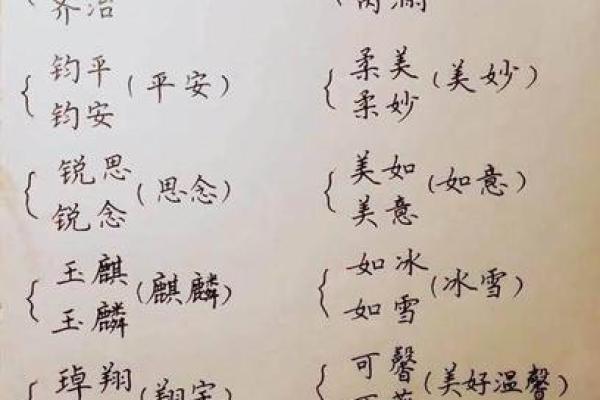 齐治
钧平
钧安
(平安)
锐思
锐念
(思念)
玉麒
玉麟
(麒麟)
琸翔
(翔宇)
柔美
柔妙
(美妙)
美如
美意
(如意)
如冰
如雪
(冰雪)
可馨
(美好温馨)